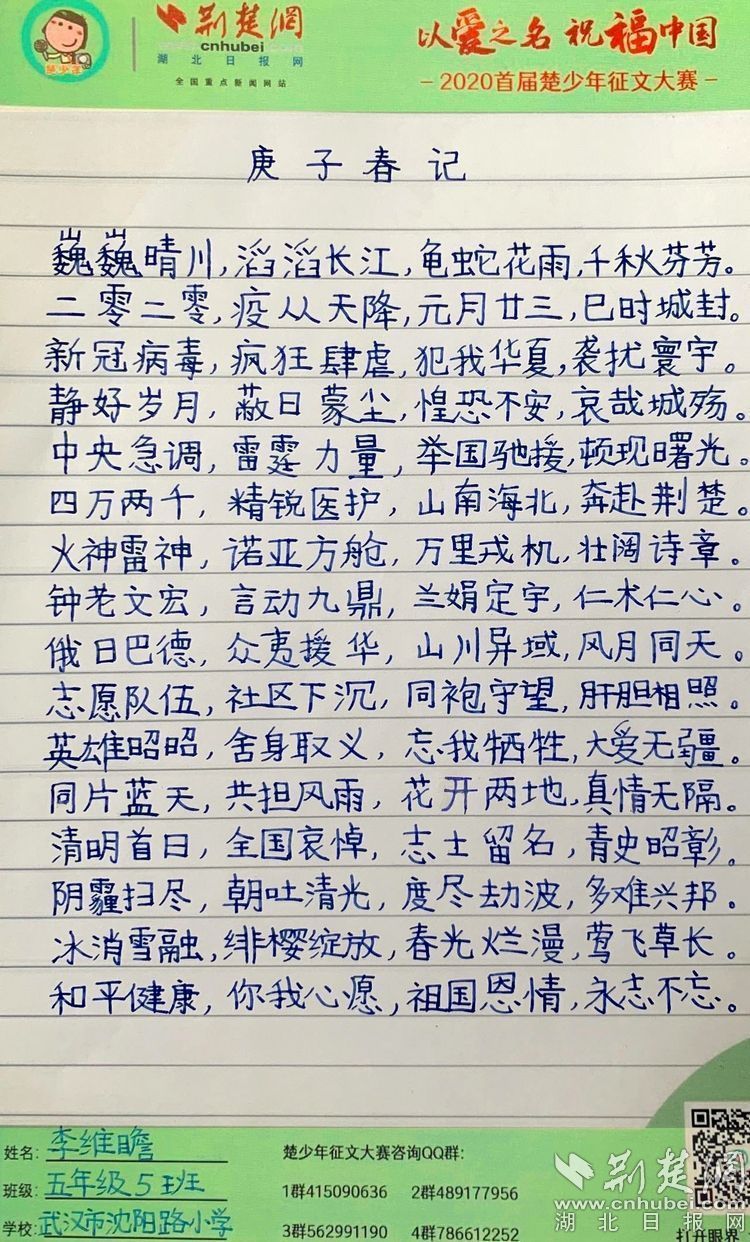 楚少年
荆楚网
www.cnhubei.com
湖北日报网
全国重点新闻网站
以爱之名 祝福中国
-2020首届楚少年征文大赛-
庚子春记
巍巍晴川,滔滔长江,龟蛇花雨,千秋芬芳。
二零二零,疫从天降,元月廿三,巳时城封。
新冠病毒,疯狂肆虐,犯我华夏,袭扰寰宇。
静好岁月,蔽日蒙尘,惶恐不安,哀哉城殇。
中央急调,雷霆力量,举国驰援,顿现曙光。
四万两千,精锐医护,山南海北,奔赴荆楚。
火神雷神,诺亚方舱,万里戎机,壮阔诗章。
钟老文宏,言动九鼎,兰娟定宇,仁术仁心。
俄日巴德,众夷援华,山川异域,风月同天。
志愿队伍,社区下沉,同袍守望,肝胆相照。
英雄昭昭,舍身取义,忘我牺牲,大爱无疆。
同片蓝天,共担风雨,花开两地,真情无隔。
清明首日,全国哀悼,志士留名,青史昭彰。
阴霾扫尽,朝吐清光,度尽劫波,多难兴邦。
冰消雪融,绯樱绽放,春光烂漫,莺飞草长。
和平健康,你我心愿,祖国恩情,永志不忘。
姓名:李维瞻
班级:五年级5班
学校:武汉市沈阳路小学
楚少年征文大赛咨询QQ群:
1群415090636 2群489177956
3群562991190 4群786612252
打开眼界
荆楚网
www.cnhubei.com
湖北日报网